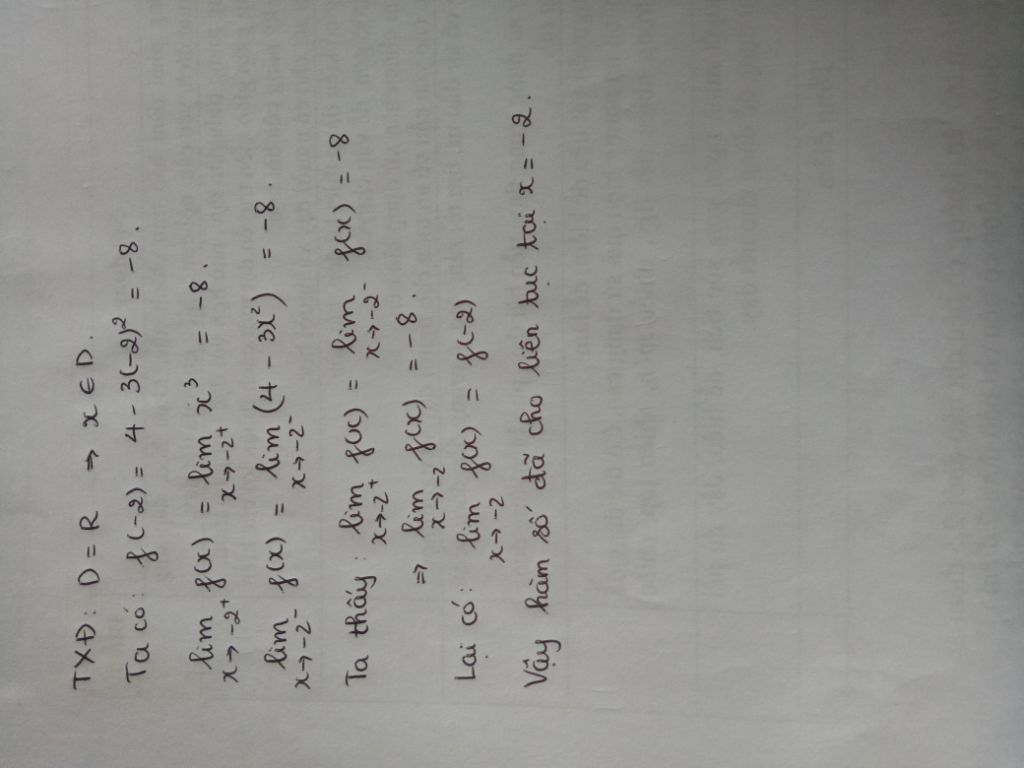 TXĐ: D = R ⇒ x ∈ D.
Ta có: f(-2) = 4 - 3(-2)² = -8.
lim x→-2⁺ f(x) = lim x→-2⁺ x³ = -8.
lim x→-2⁻ f(x) = lim x→-2⁻ (4 - 3x²) = -8.
Ta thấy: lim x→-2⁺ f(x) = lim x→-2⁻ f(x) = -8
⇒ lim x→-2 f(x) = -8.
Lại có: lim x→-2 f(x) = f(-2)
Vậy hàm số đã cho liên tục tại x = -2.